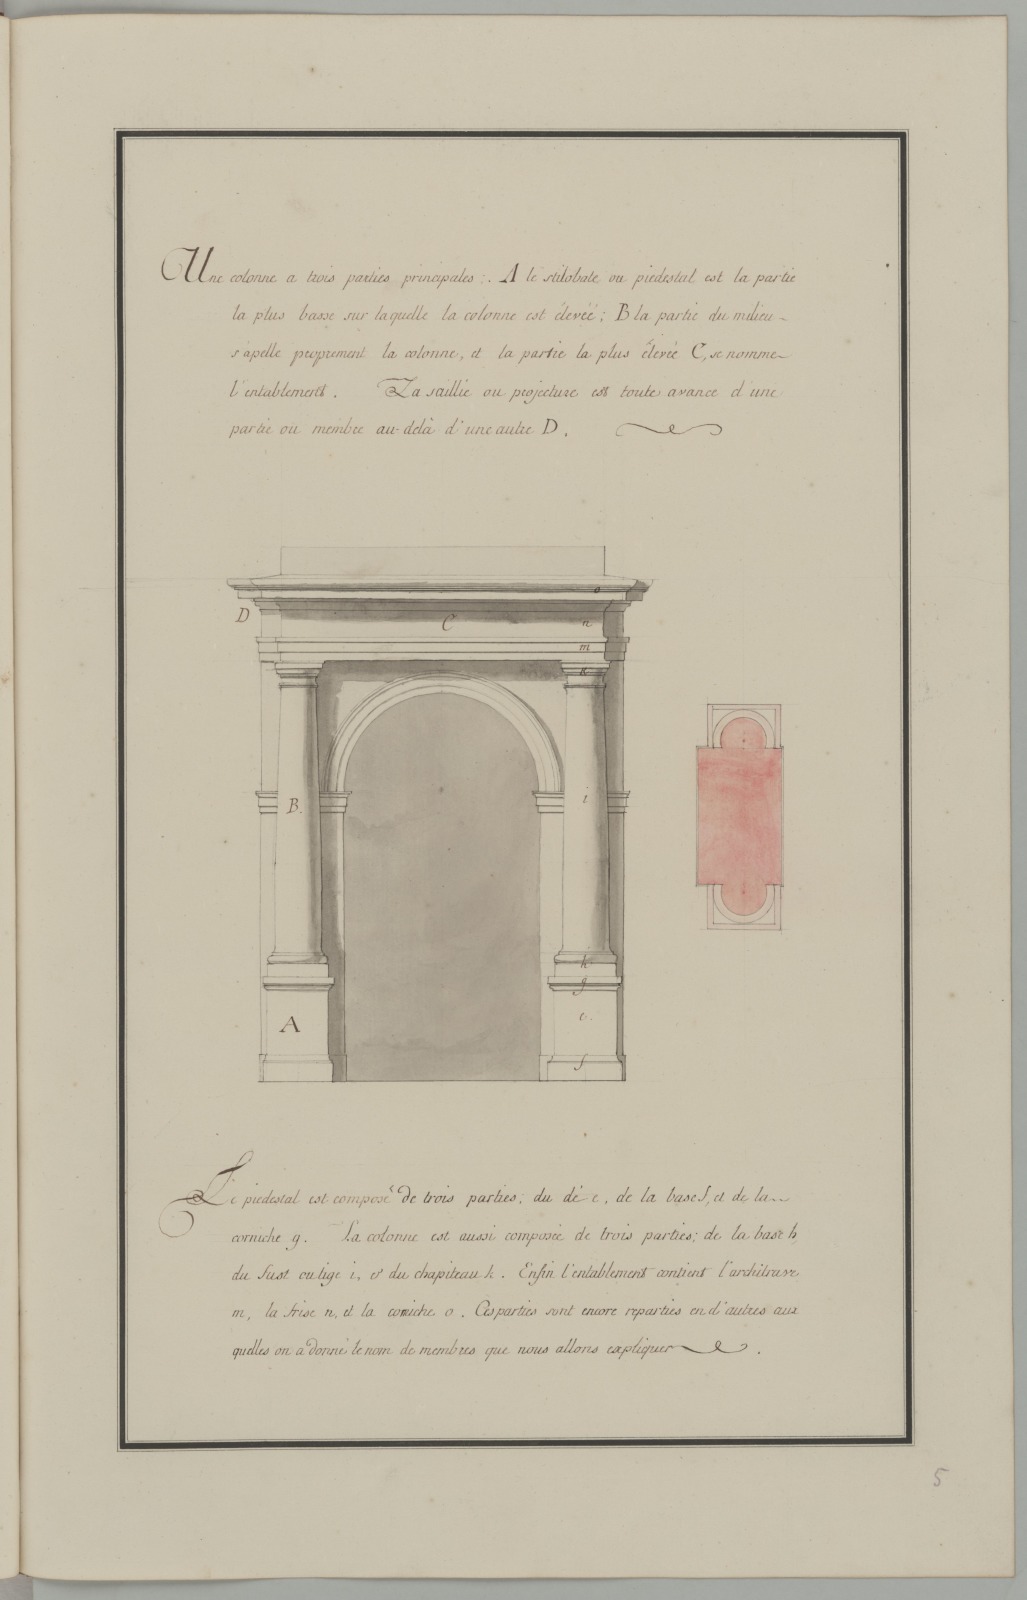 Une colonne a trois parties principales:. A le stilobate ou piedestal est la partie
la plus basse sur laquelle la colonne est élevéé; B la partie du milieu
s'apelle proprement la colonne, et la partie la plus élevéé C, se nomme
l'entablement. La saillie ou projecture est toute avance d'une
partie ou membre au-delà d'une autre D.
D
C
o
n
m
k
B.
i
h
g
A
e.
f
Le piedestal est composé de trois parties; du dé e, de la base f, et de la
corniche g. La colonne est aussi composée de trois parties; de la base h,
du fust ou tige i, & du chapiteau k. Enfin l'entablement contient l'architrave
m, la frise n, et la corniche o. Ces parties sont encore reparties en d'autres aux
quelles on a donné le nom de membres que nous allons expliquer.
5